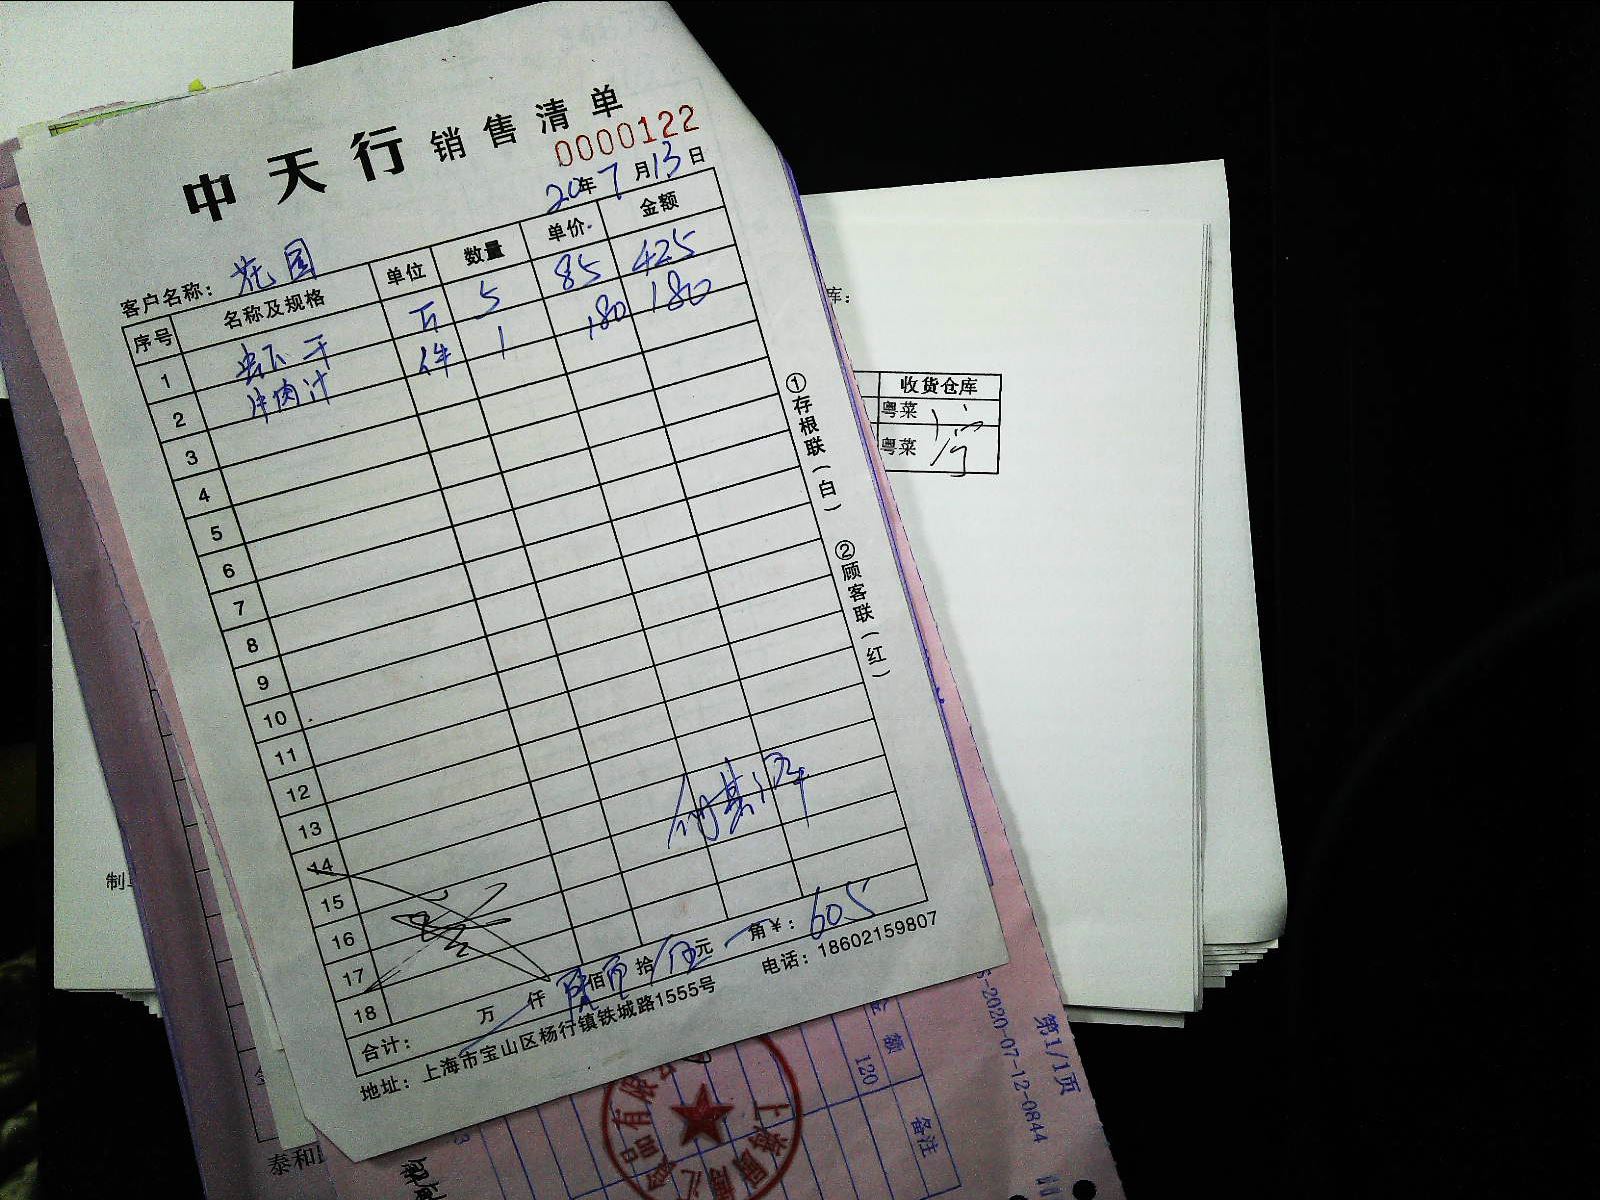 中天行 销售清单
0000122
20年7月13日
客户名称：花园
序号 名称及规格 单位 数量 单价 金额
1 虾干 斤 5 85 425
2 牛肉汁 件 1 180 180
3
4
5
6
7
8
9
10
11
12
13
14
15
16
17
18
合计： 万 仟 陆佰 拾 伍元 角 ¥：605
地址：上海市宝山区杨行镇铁城路1555号 电话：18602159807
①存根联（白） ②顾客联（红）
库：
收货仓库
粤菜
粤菜
制
泰和
金额
120
备注
第1/1页
S-2020-07-12-0844